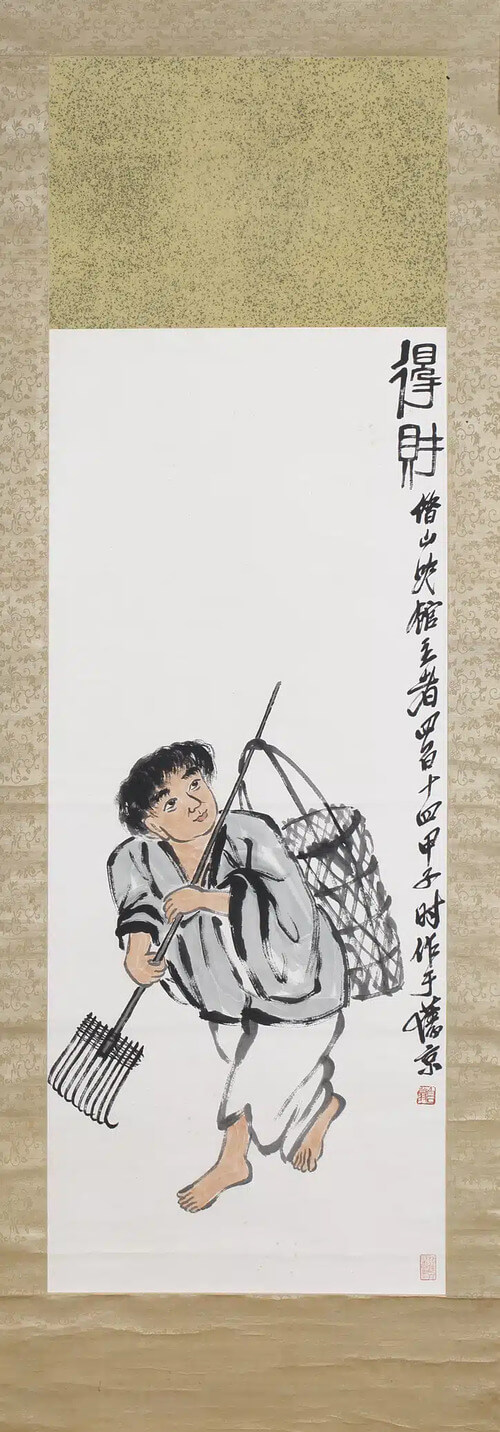 得財
借山吟館主者四百十四甲子时作于舊京